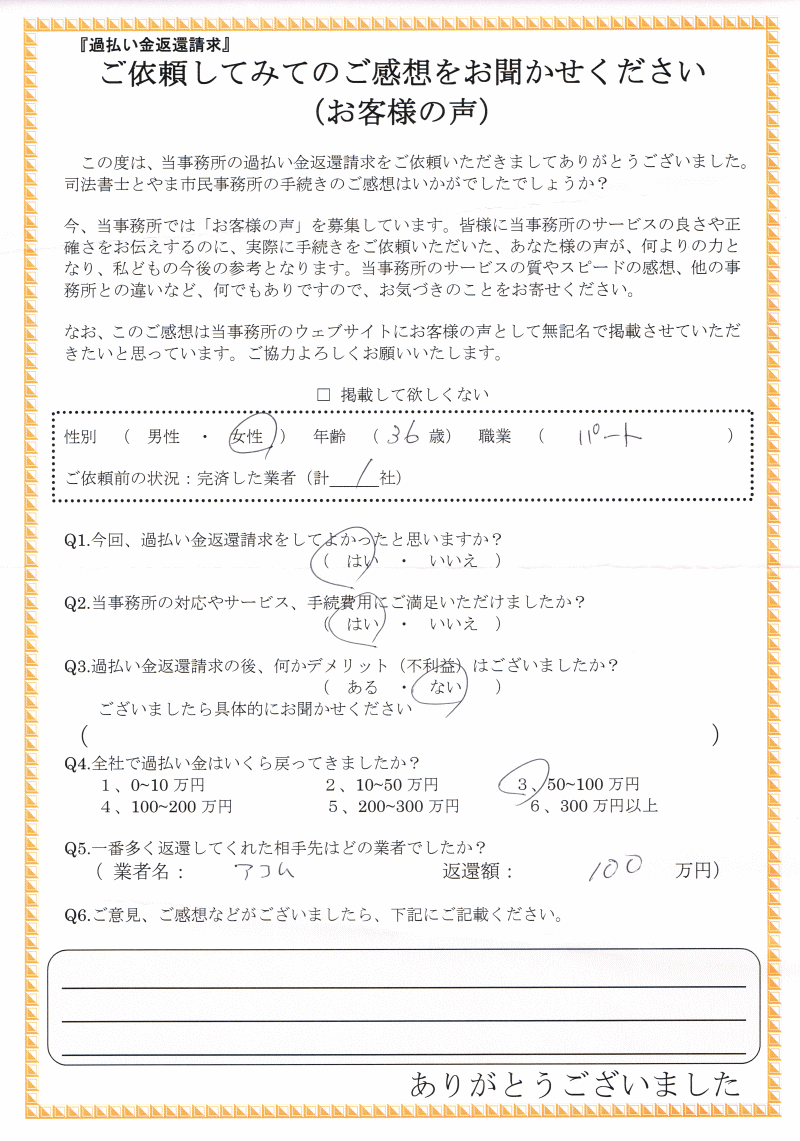 『過払い金返還請求』
ご依頼してみてのご感想をお聞かせください
（お客様の声）
この度は、当事務所の過払い金返還請求をご依頼いただきましてありがとうございました。
司法書士とやま市民事務所の手続きのご感想はいかがでしたでしょうか？
今、当事務所では「お客様の声」を募集しています。皆様に当事務所のサービスの良さや正
確さをお伝えするのに、実際に手続きをご依頼いただいた、あなた様の声が、何よりの力と
なり、私どもの今後の参考となります。当事務所のサービスの質やスピードの感想、他の事
務所との違いなど、何でもありですので、お気づきのことをお寄せください。
なお、このご感想は当事務所のウェブサイトにお客様の声として無記名で掲載させていただ
きたいと思っています。ご協力よろしくお願いいたします。
□ 掲載して欲しくない
性別 （ 男性 ・ 女性 ） 年齢 （ 36 歳） 職業 （ パート ）
ご依頼前の状況：完済した業者（計 1 社）
Q1.今回、過払い金返還請求をしてよかったと思いますか？
（ はい ・ いいえ ）
Q2.当事務所の対応やサービス、手続費用にご満足いただけましたか？
（ はい ・ いいえ ）
Q3.過払い金返還請求の後、何かデメリット（不利益）はございましたか？
（ ある ・ ない ）
ございましたら具体的にお聞かせください
（ ）
Q4.全社で過払い金はいくら戻ってきましたか？
１、0~10 万円 ２、10~50 万円 ３、50~100 万円
４、100~200 万円 ５、200~300 万円 ６、300 万円以上
Q5.一番多く返還してくれた相手先はどの業者でしたか？
（ 業者名： アコム 返還額： 100 万円）
Q6.ご意見、ご感想などがございましたら、下記にご記載ください。
ありがとうございました